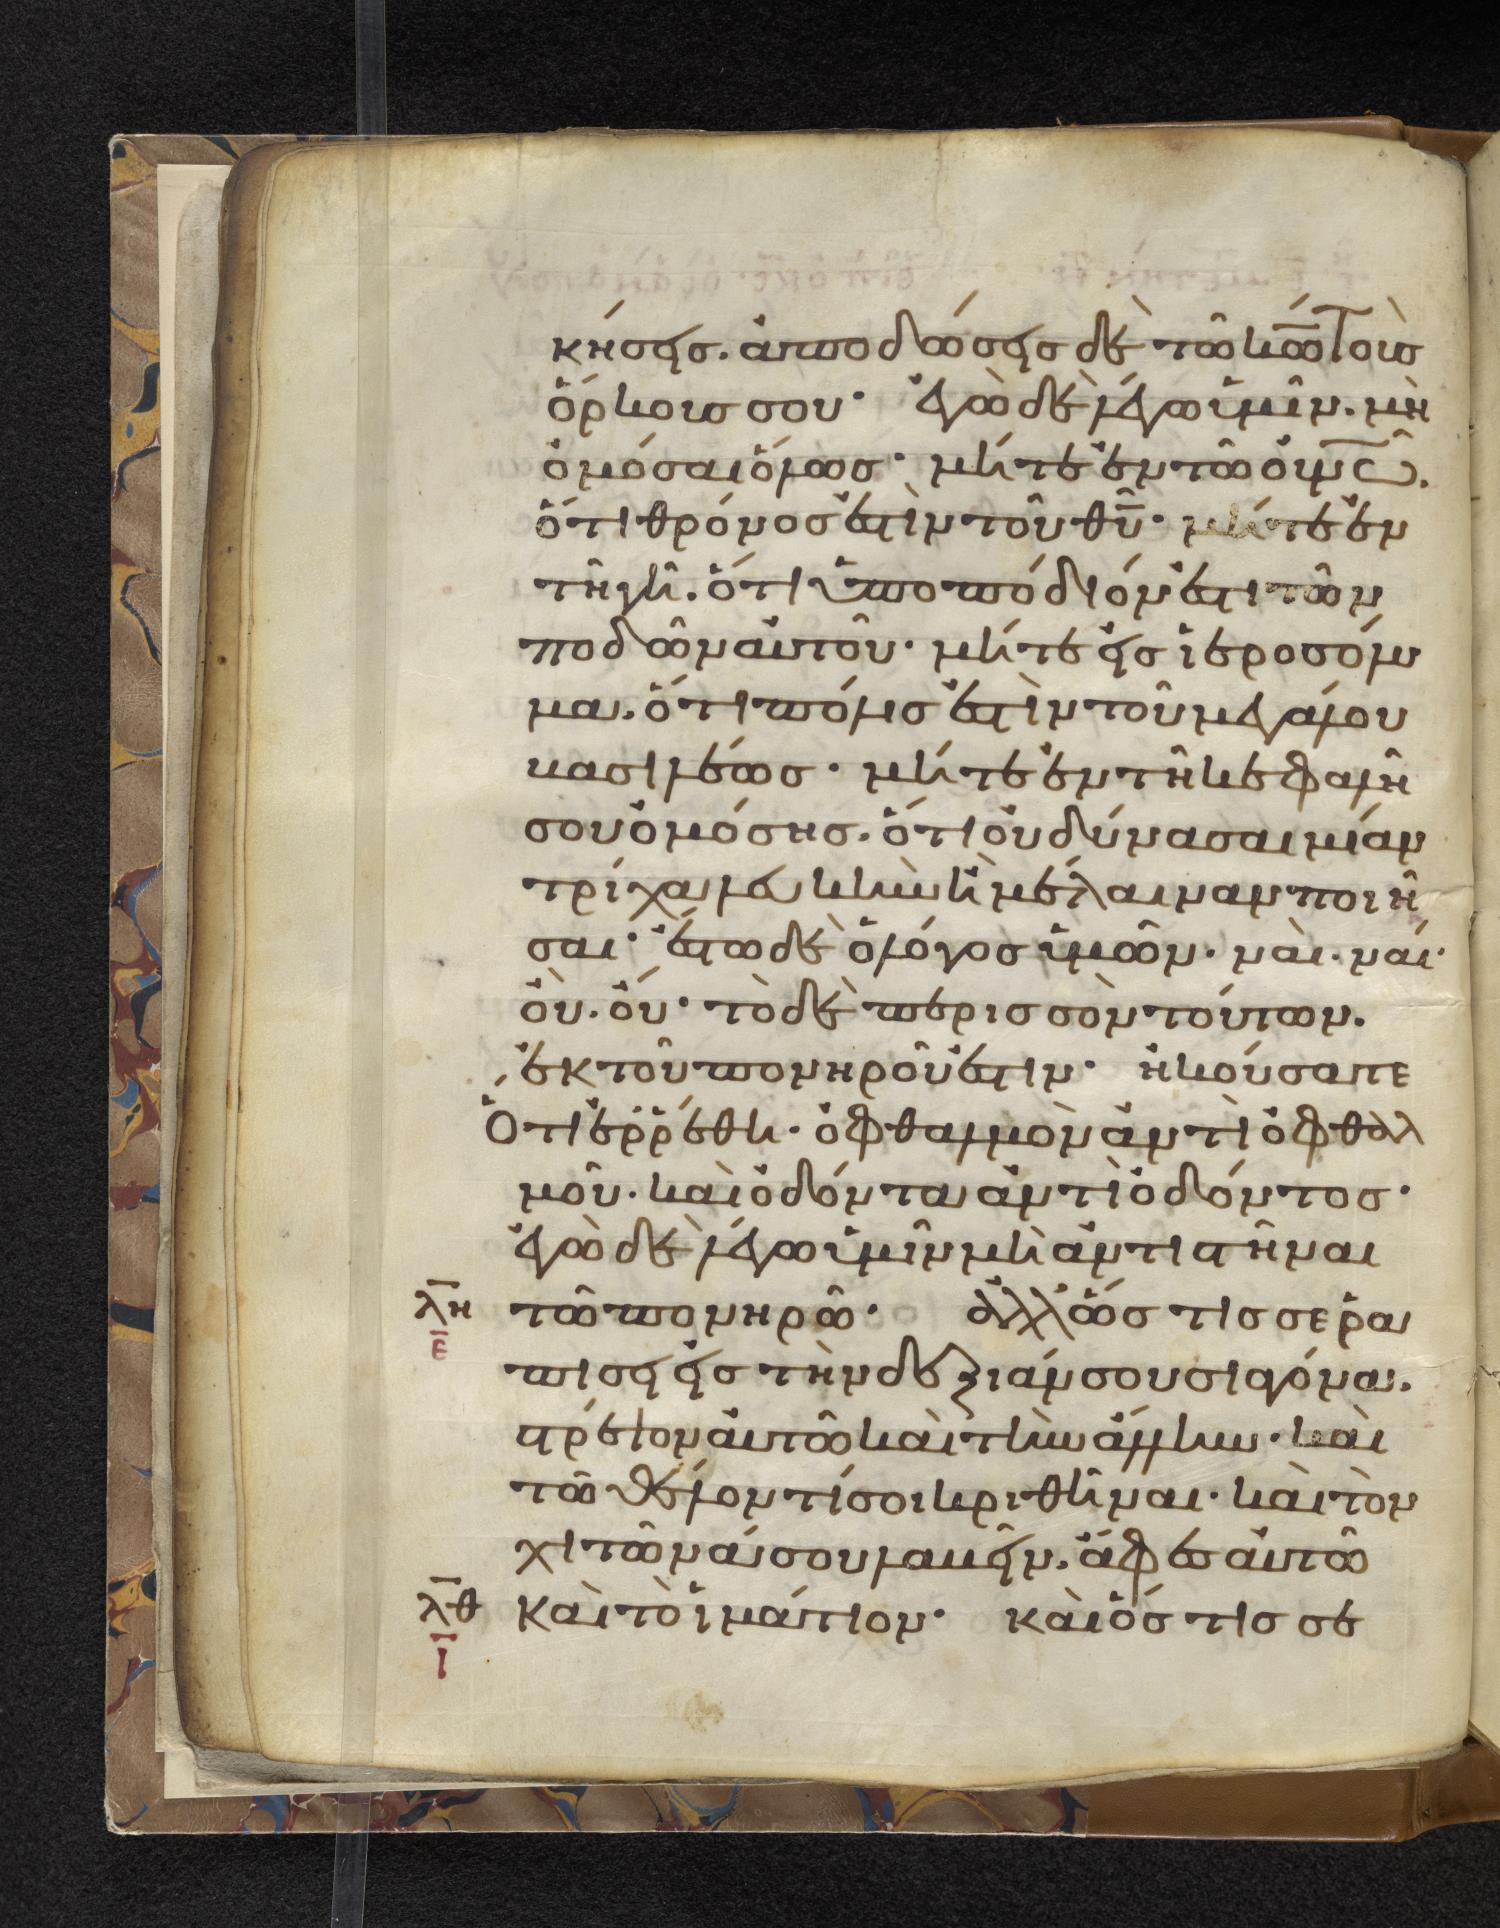 κήσεις. ἀποδώσεις δὲ τῶ κω̅ τοὺς
ὅρκους σου· ἐγὼ δὲ λέγω ὑμῖν. μὴ
ὀμόσαι ὅλως· μήτε ἐν τῶ οὐν̅ω̅.
ὅτι θρόνος ἐστὶν τοῦ θυ̅· μήτε ἐν
τῆ γῆ. ὅτι ὑποπόδιόν ἐστι τῶν
ποδῶν αὐτοῦ· μήτε εἰς ἱεροσόλυ
μα. ὅτι πόλις ἐστὶν τοῦ μεγάλου
βασιλέως· μήτε ἐν τῆ κεφαλῆ
σου ὀμόσης. ὅτι οὐ δύνασαι μίαν
τρίχα λευκὴν ἢ μέλαιναν ποιῆ
σαι· ἔστω δὲ ὁ λόγος ὑμῶν. ναὶ. ναί·
οὺ. οὔ· τὸ δὲ περισσὸν τούτων.
ἐκ τοῦ πονηροῦ ἐστιν· ἠκούσατε
Ὅτι ἐρρέθη. ὀφθαλμὸν ἀντὶ ὀφθαλ
μοῦ. καὶ ὀδόντα ἀντὶ ὀδόντος·
ἐγὼ δὲ λέγω ὑμῖν μὴ ἀντιστῆναι
λ̅η τῶ πονηρῶ· ἀλλ' ὅστις σε ῥα
ε̅ πίσει εἰς τὴν δεξιάν σου σιαγόνα.
στρέψον αὐτῶ καὶ τὴν ἄλλην. καὶ
τῶ θέλοντί σοι κριθῆναι. καὶ τὸν
χιτῶνά σου λαβεῖν. ἄφες αὐτῶ
λ̅θ καὶ τὸ ἱμάτιον· καὶ ὅστις σε
ι̅